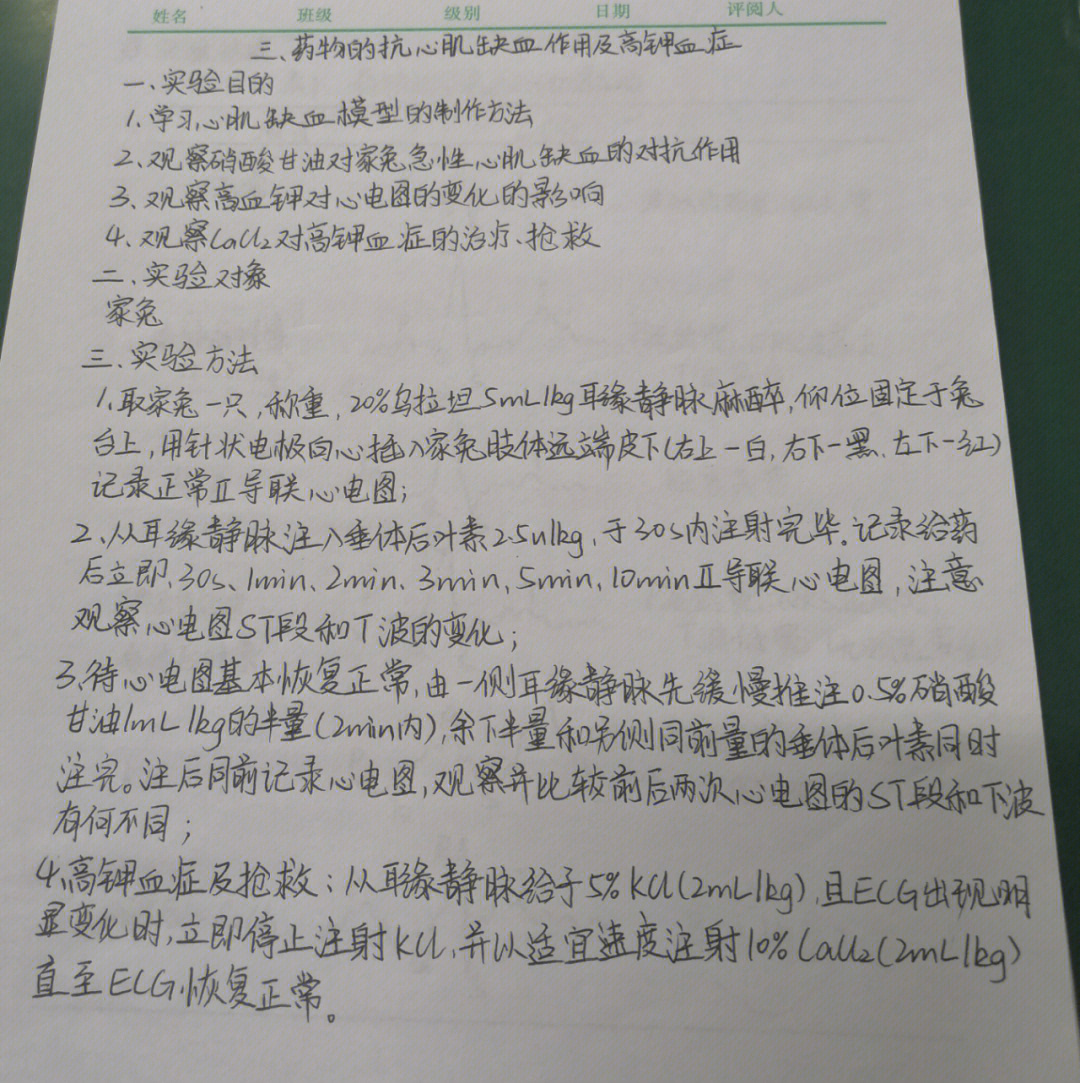 姓名 班级 级别 日期 评阅人
三、药物的抗心肌缺血作用及高钾血症
一、实验目的
1、学习心肌缺血模型的制作方法
2、观察硝酸甘油对家兔急性心肌缺血的对抗作用
3、观察高血钾对心电图的变化的影响
4、观察CaCl2对高钾血症的治疗、抢救
二、实验对象
家兔
三、实验方法
1、取家兔一只,称重,20%乌拉坦5mL/kg耳缘静脉麻醉,仰位固定于兔
台上,用针状电极向心插入家兔肢体远端皮下(右上-白,右下-黑、左下-红)
记录正常Ⅱ导联心电图;
2、从耳缘静脉注入垂体后叶素2.5u/kg,于30s内注射完毕。记录给药
后立即、30s、1min、2min、3min,5min,10minⅡ导联心电图,注意
观察心电图ST段和T波的变化;
3、待心电图基本恢复正常,由一侧耳缘静脉先缓慢推注0.5%硝酸
甘油1mL/kg的半量(2min内),余下半量和另侧同前量的垂体后叶素同时
注完。注后同前记录心电图,观察并比较前后两次心电图的ST段和T波
有何不同;
4、高钾血症及抢救:从耳缘静脉给予5%KCl(2mL/kg),且ECG出现明
显变化时,立即停止注射KCl,并以适宜速度注射10%CaCl2(2mL/kg)
直至ECG恢复正常。